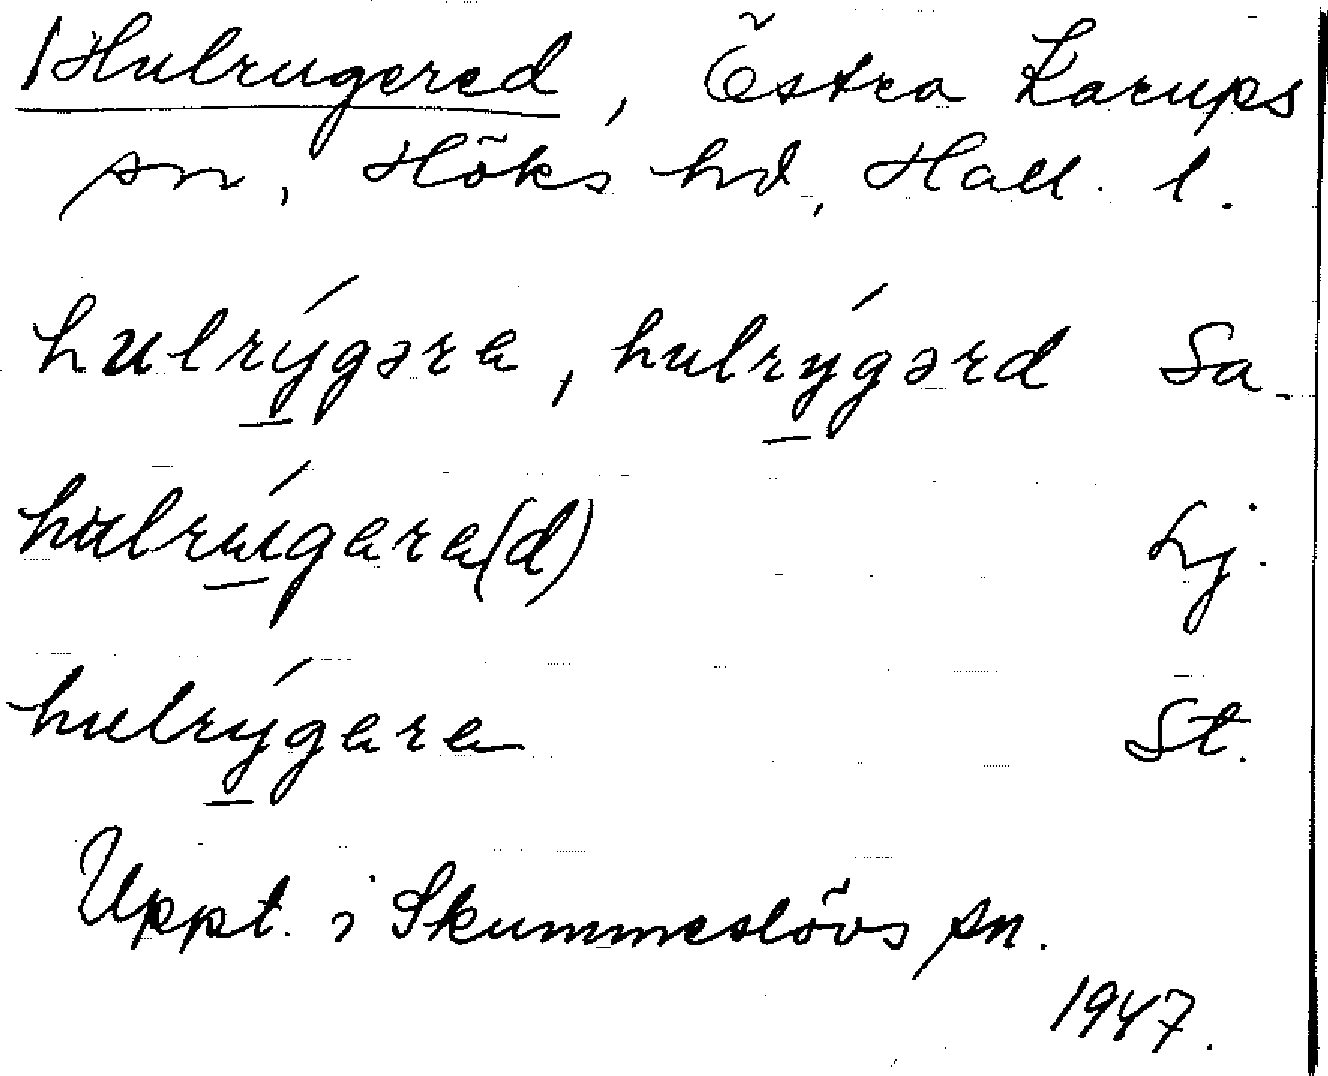 Hulrugered, Östra Karups
sn, Höks hd, Hall. l.
hulrýgəra, hulrýgərd Sa
hulrúgara(d) Lj.
hulrýgara St.
Uppt. i Skummeslövs sn.
1947.